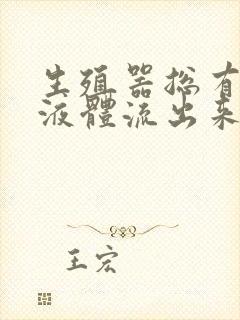 生殖器總有
液體流出來
王宏